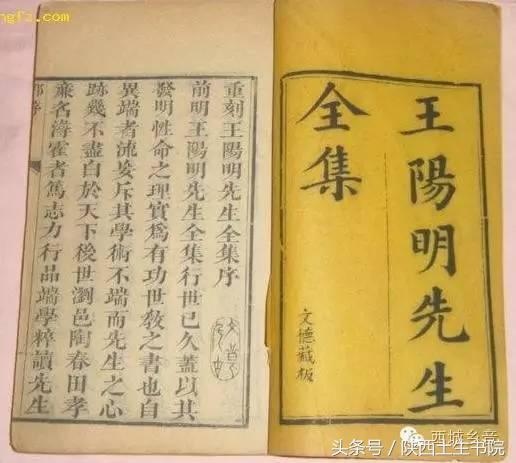 王陽明先生
全集
文德藏板
重刻王陽明先生全集序
前明王陽明先生全集行世已久蓋以其
發明性命之理實爲有功世敎之書也自
異端者流妄斥其學術不端而先生之心
跡幾不盡白於天下後世瀏邑陶春田孝
廉名潯霍者篤志力行品端學粹讀先生
頭条号/陕西土生书院
西城乡音
ngfz.com